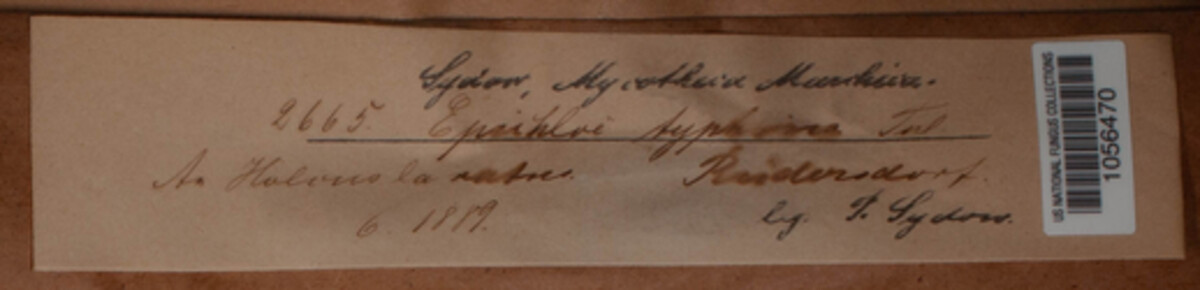 Sydow, Mycotheca Marchica.
2665. Epichloë typhina Tul
An Holcus lanatus. Rüdersdorf.
6. 1889. leg. P. Sydow.
US NATIONAL FUNGUS COLLECTIONS
1056470